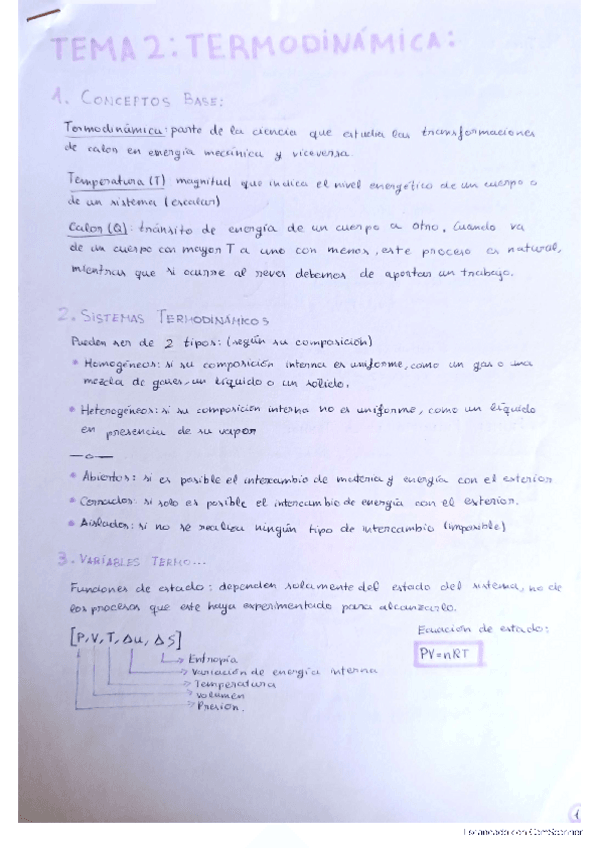 TEMA 2: TERMODINÁMICA:
1. CONCEPTOS BASE:
Termodinámica: parte de la ciencia que estudia las transformaciones
de calor en energía mecánica y viceversa.
Temperatura (T) magnitud que indica el nivel energético de un cuerpo o
de un sistema (escalar)
Calor (Q): tránsito de energía de un cuerpo a otro. Cuando va
de un cuerpo con mayor T a uno con menos, este proceso es natural,
mientras que si ocurre al revés debemos de aportar un trabajo.
2. SISTEMAS TERMODINÁMICOS
Pueden ser de 2 tipos: (según su composición)
• Homogéneos: si su composición interna es uniforme, como un gas o una
mezcla de gases, un líquido o un sólido.
• Heterogéneos: si su composición interna no es uniforme, como un líquido
en presencia de su vapor
—o—
• Abiertos: si es posible el intercambio de materia y energía con el exterior
• Cerrados: si solo es posible el intercambio de energía con el exterior.
• Aislados: si no se realiza ningún tipo de intercambio (imposible)
3. VARIABLES TERMO...
Funciones de estado: dependen solamente del estado del sistema, no de
los procesos que este haya experimentado para alcanzarlo.
[P, V, T, Δu, ΔS]
Entropía
Variación de energía interna
Temperatura
Volumen
Presión.
Ecuación de estado:
PV=nRT
1
Escaneado con CamScanner